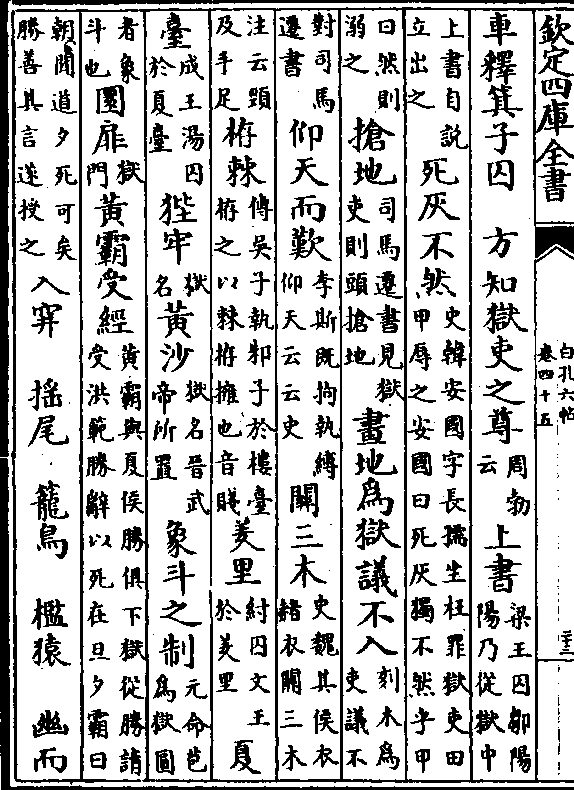 欽定四庫全書
白孔六帖
卷四十五
車釋箕子囚 方知獄吏之尊周勃云 上書梁王囚鄒陽陽乃從獄中
上書自説立出之 死灰不然史韓安國字長孺生枉罪獄吏田甲辱之安國曰死灰獨不然乎甲
曰然則溺之 搶地司馬遷書見獄吏則頭搶地 畫地為獄議不入刻木為吏議不
對司馬遷書 仰天而歎李斯既拘執縛仰天云云史 關三木史魏其侯衣赭衣關三木
注云頸及手足 栫棘傳吳子執邾子於樓臺栫之以棘栫擁也音賤 羑里紂囚文王於羑里 夏
臺成王湯囚於夏臺 狴牢獄名 黃沙獄名晉武帝所置 象斗之制元命苞為獄圖
者象斗也 圜扉獄門 黃霸受經黃霸與夏侯勝俱下獄從勝請受洪範勝辭以死在旦夕霸曰
朝聞道夕死可矣勝善其言遂授之 入穽 搖尾 籠鳥 檻猿 幽而